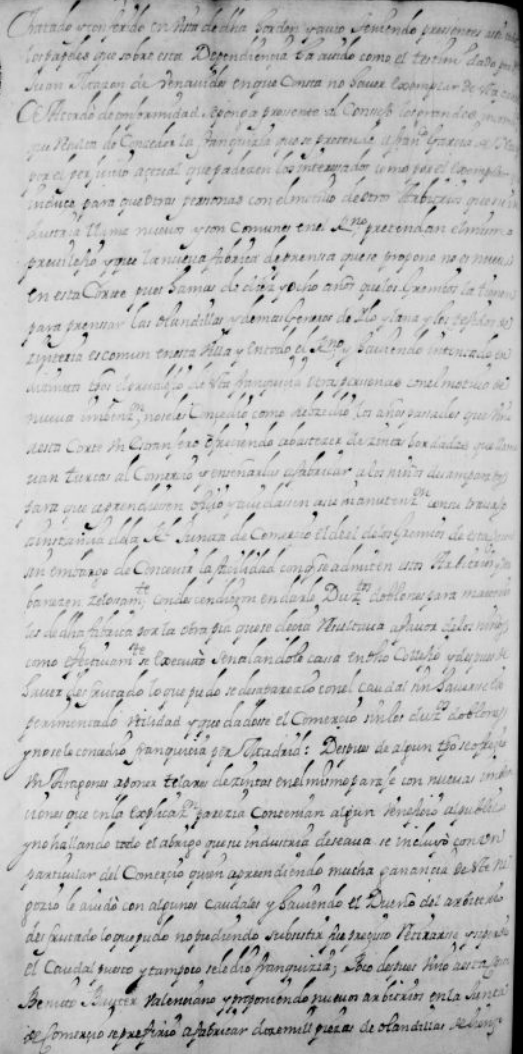 Tratado y conferido en vista de dha horden y auto teniendo presentes
los papeles que sobre esta Dependiencia ha auido como el testimº dado por
Juan Alazan de Venauides en que Consta no hauer exemplar de
Acordò de conformidad se ponga presente al Consejo los grandes
que resulta de Conceder la franquizia que se pretende a franº Garcia
por el perjuiçio actual que padezen los interesados como por el exemplar
induce para que otras personas con el motiuo de otros Arbitrios que
dustria llame nueuos y son Comunes en el Rno pretendan el mismo
preuilejio y que la nueua fabrica de prensa que se propone no es
en esta Corte pues ha mas de diez y ocho años que los Gremios la tienen
para prensar las olandillas y demas Generos de Ilo y lana y los
zinteria es comun en esta Villa y en todo el Rno y hauiendo intentado en
tpos el de franquizia otras personas con el motiuo de
nueua no se les Conçedio como los años pasados que vino
a esta Corte Vn estranjero ofreciendo abastezer de zintas bordadas que
tuercas al Comercio y enseñarlas a fabricar a los niños desamparados
para que aprendiesen ofiçio y ayudasen a su manutenzon con su trauajo
a instançia de la Rl Junta de Comercio el de los Gremios de esta
sin embargo de Conocer la façilidad con que se admiten estos Arbitrios y
condescendieron en darle Duztos doblones para
de dha fabrica por la obra pia que se deçia resultaua a fauor de los niños
como efectiuamte se executò señalandole casa en dho Collejio y despues de
hauer desfrutado lo que pudo se desapareziò con el caudal sin hauerse
perimentado vtilidad y quedadose el Comercio sin los duztos doblones
y no se le concediò franquizia por Madrid: Despues de algun tpo se ofreziò
Vn Aragones a poner telares de zintas en el mismo paraje con nueuas
ciones que en la explicazon parezia Contenian algun veneficio al publico
y no hallando todo el abrigo que su industria deseaua se incluyò con vn
particular del Comerçio quien aprendiendo mucha ganançia de este ni
gozio le aiudò con algunos Caudales y hauiendo el Dueño del arbitrio
desfrutado lo que pudo no pudiendo subsistir fue preçiso retirarse y
el Caudal puesto y tampoco se le diò franquizia; Poco despues vino a esta Corte
Benito Valenciano y proponiendo nueuos arbitrios en la Junta
de Comercio se prefiriò a fabricar doze mill piezas de olandillas